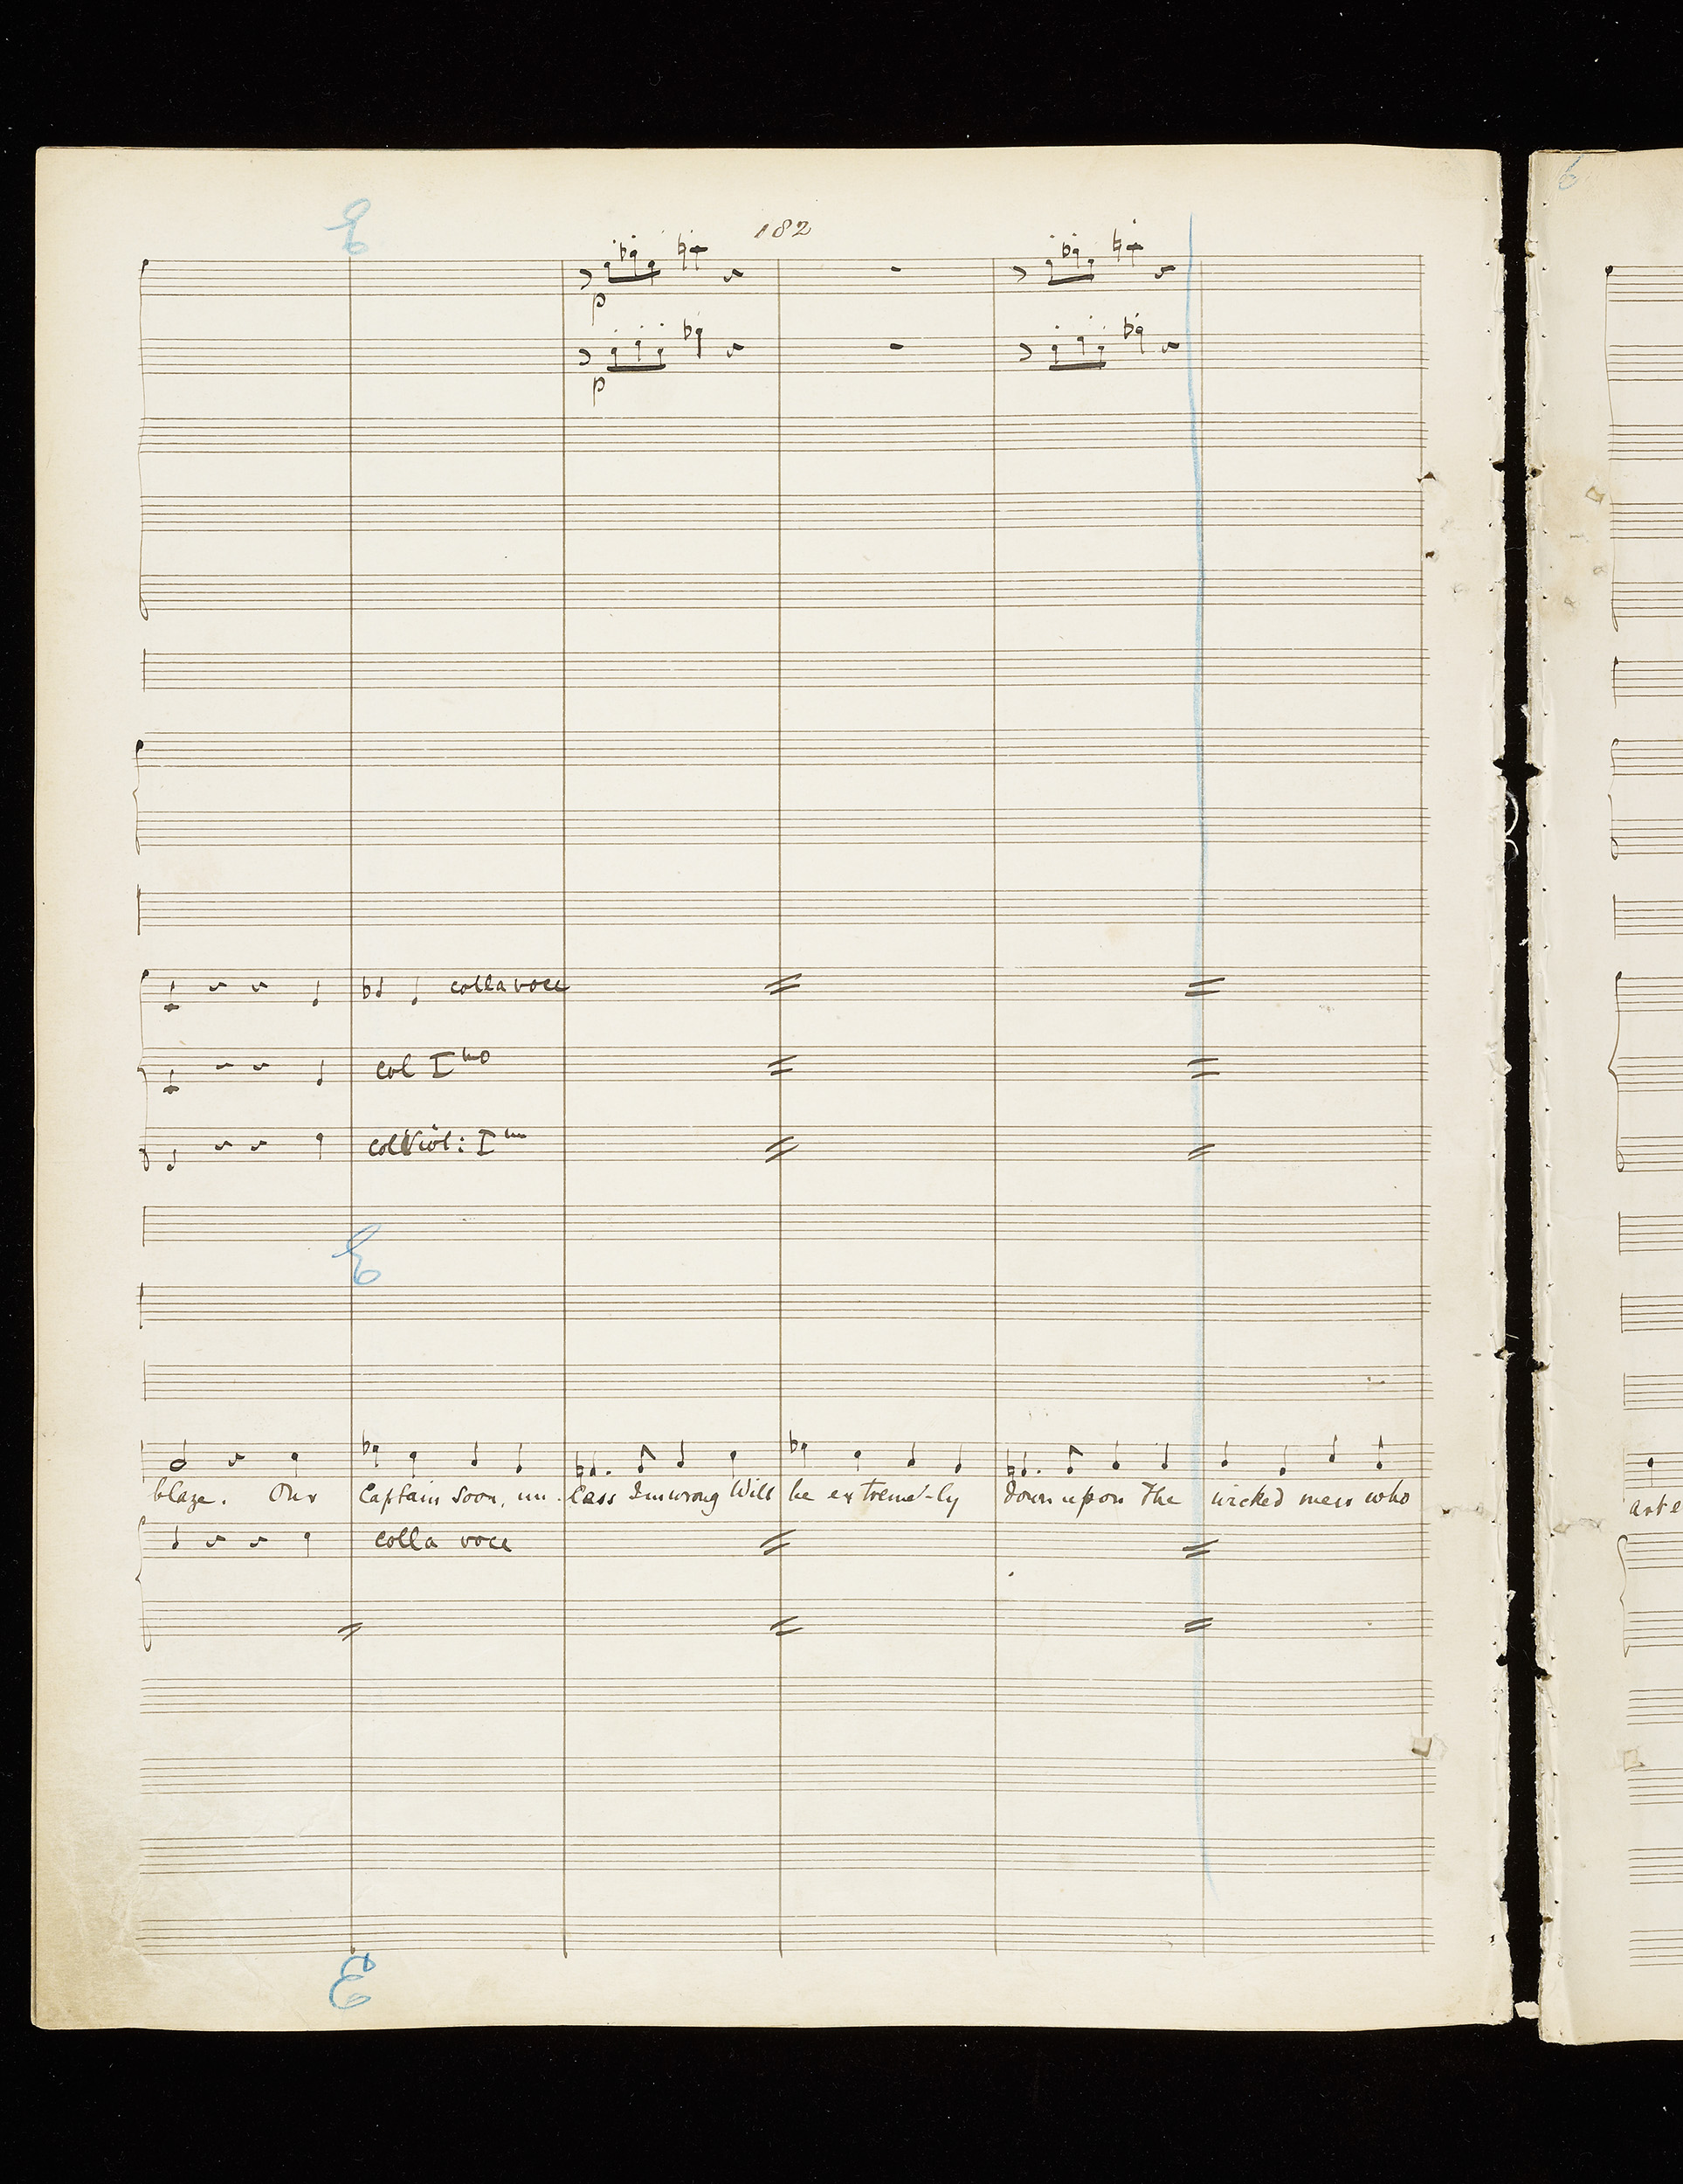 E
182
6
p
p
colla voce
col Imo
col Viol: Imo
E
blaze. Our Captain soon, un-less I'm wrong Will be extreme-ly down upon The wicked men who
arte
colla voce
E